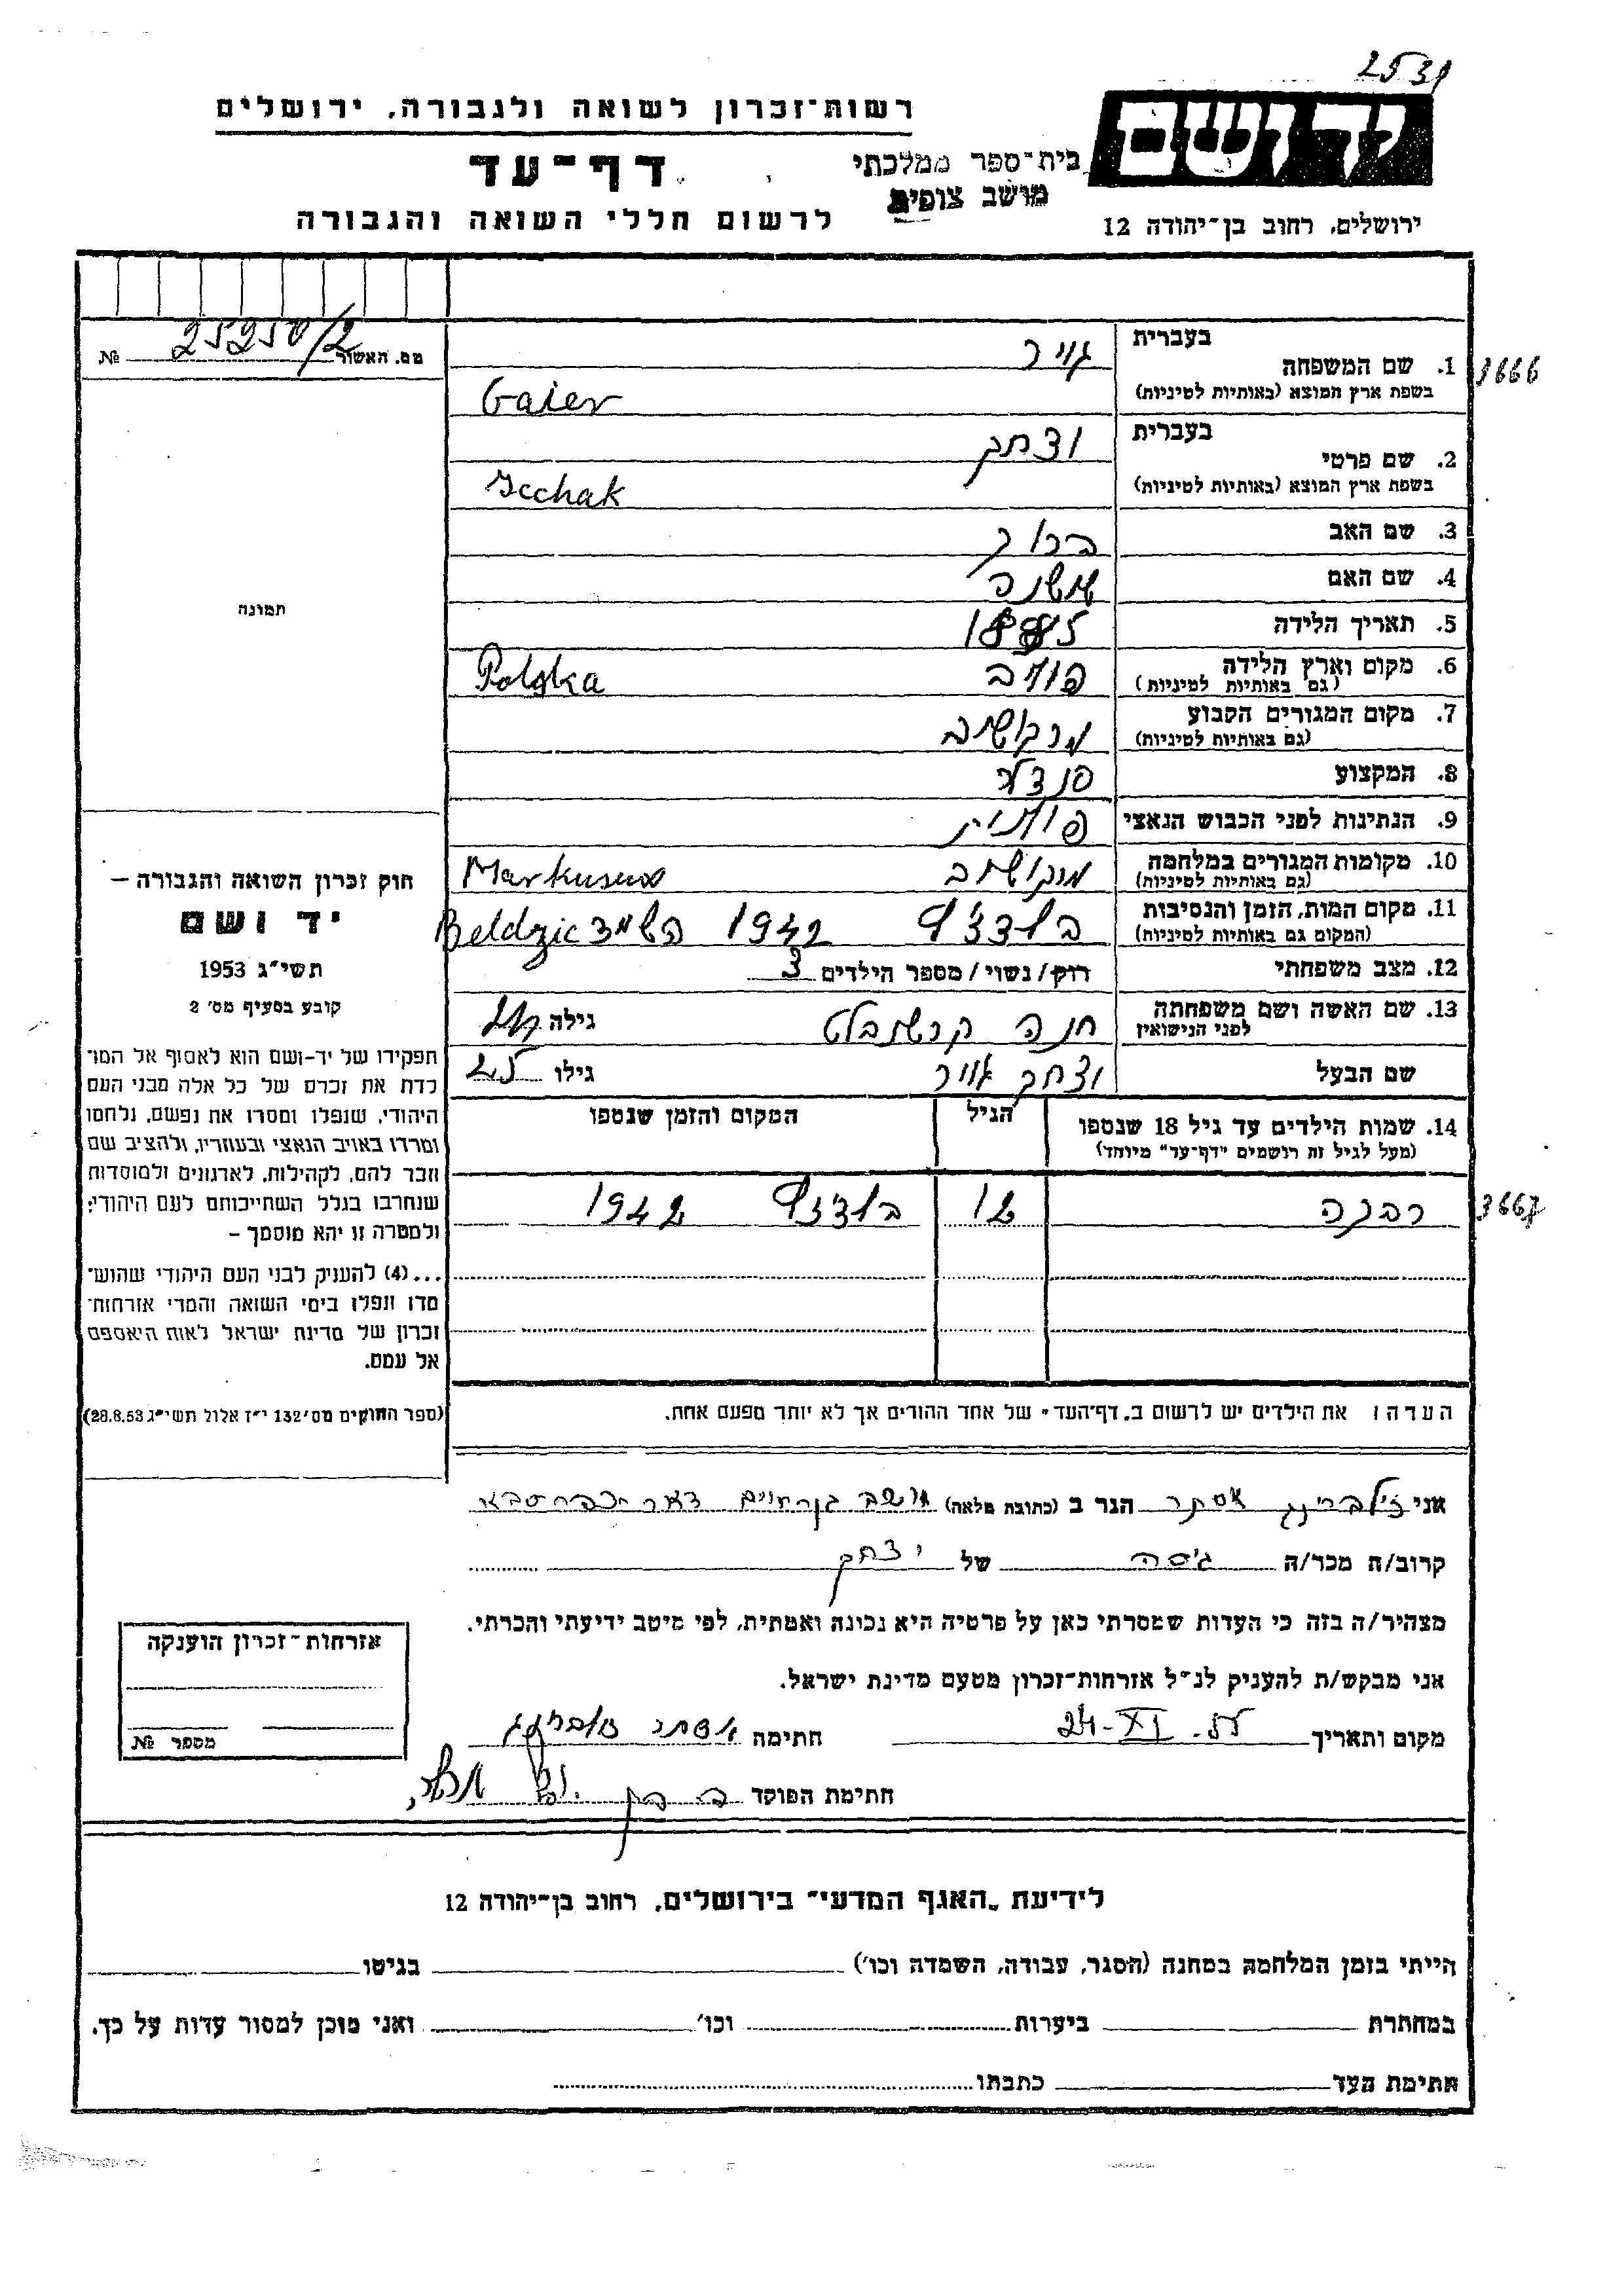 2531
רשות־זכרון לשואה ולגבורה, ירושלים
יד ושם
דף־עד
בית־ספר ממלכתי
מושב צופית
לרשום חללי השואה והגבורה
ירושלים, רחוב בן־יהודה 12
מס. האשור 25250/2 №
בעברית
1. שם המשפחה גייר 3666
בשפת ארץ המוצא (באותיות לטיניות) Gaier
בעברית
2. שם פרטי יצחק
בשפת ארץ המוצא (באותיות לטיניות) Icchak
3. שם האב ברוך
4. שם האם
תמונה
5. תאריך הלידה 1885
6. מקום וארץ הלידה פולין Polska
(גם באותיות לטיניות)
7. מקום המגורים הקבוע מרקושוב
(גם באותיות לטיניות)
8. המקצוע סנדלר
9. הנתינות לפני הכבוש הנאצי פולנית
10. מקומות המגורים במלחמה מרקושוב Markuszow
(גם באותיות לטיניות)
11. מקום המות, הזמן והנסיבות בלדז'ץ 1942 השמד Beldzic
(המקום גם באותיות לטיניות)
12. מצב משפחתי רוק/נשוי/מספר הילדים 3
13. שם האשה ושם משפחתה חנה גילה
לפני הנישואין
שם הבעל יצחק גייר גילו
14. שמות הילדים עד גיל 18 שנספו הגיל המקום והזמן שנספו
(מעל לגיל זה רושמים "דף־עד" מיוחד)
רבקה 12 בלדז'ץ 1942 3667
חוק זכרון השואה והגבורה —
יד ושם
תשי"ג 1953
קובע בסעיף מס' 2
תפקידו של יד-ושם הוא לאסוף אל המו־
לדת את זכרם של כל אלה מבני העם
היהודי, שנפלו ומסרו את נפשם, נלחמו
ומרדו באויב הנאצי ובעוזריו, ולהציב שם
וזכר להם, לקהילות, לארגונים ולמוסדות
שנחרבו בגלל השתייכותם לעם היהודי;
ולמטרה זו יהא מוסמך —
...(4) להעניק לבני העם היהודי שהוש־
מדו ונפלו בימי השואה והמרי אזרחות־
זכרון של מדינת ישראל לאות היאספם
אל עמם.
(ספר החוקים מס' 132 י"ז אלול תשי"ג 28.8.53)
הערה: את הילדים יש לרשום ב"דף־העד" של אחד ההורים אך לא יותר מפעם אחת.
אני זילברינג אסתר הגר ב (כתובת מלאה) מושב גן חיים דאר כפר סבא
קרוב/ה מכר/ה גיסה של יצחק
מצהיר/ה בזה כי העדות שמסרתי כאן על פרטיה היא נכונה ואמתית, לפי מיטב ידיעתי והכרתי.
אני מבקש/ת להעניק לנ"ל אזרחות־זכרון מטעם מדינת ישראל.
מקום ותאריך 24-XI-55 חתימה אסתר זילברינג
חתימת הפוקד
אזרחות־זכרון הוענקה
מספר №
לידיעת "האגף המדעי" בירושלים, רחוב בן־יהודה 12
הייתי בזמן המלחמה במחנה (הסגר, עבודה, השמדה וכו') בגיטו
במחתרת ביערות וכו' ואני מוכן למסור עדות על כך.
חתימת העד כתבתו